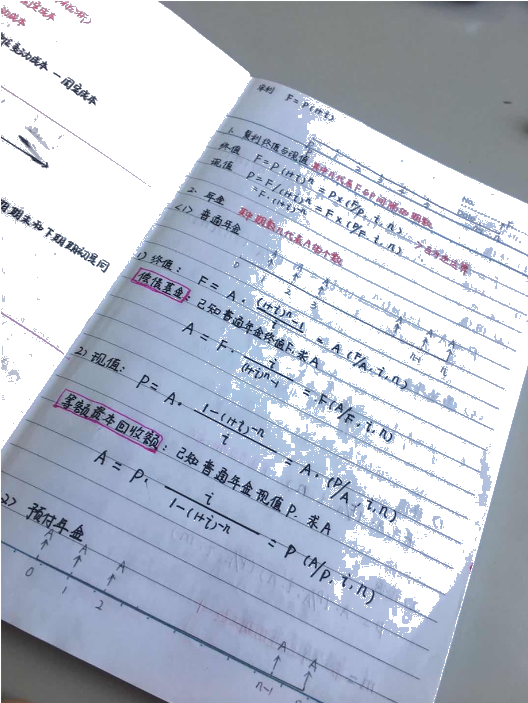 固定成本
变动成本 — 固定成本
期末和下期期初是同
单利 F=P(1+i)
1. 复利终值与现值
终值 F=P(1+i)^n = P×(F/P, i, n)
现值 P=F/(1+i)^n = F×(P/F, i, n)
=F·(1+i)^-n
NO.
2. 年金
<1> 普通年金
其中期数n代表A的个数
A A A A A A
0 1 2 3 n-1 n
1) 终值: F = A · ((1+i)^n-1)/i = A (F/A, i, n)
偿债基金: 已知普通年金终值F, 求A
A = F · i/((1+i)^n-1) = F(A/F, i, n)
2) 现值: P = A · (1-(1+i)^-n)/i = A · (P/A, i, n)
等额资本回收额: 已知普通年金现值P, 求A
A = P · i/(1-(1+i)^-n) = P (A/P, i, n)
2> 预付年金
A A A A A
0 1 2 n-1